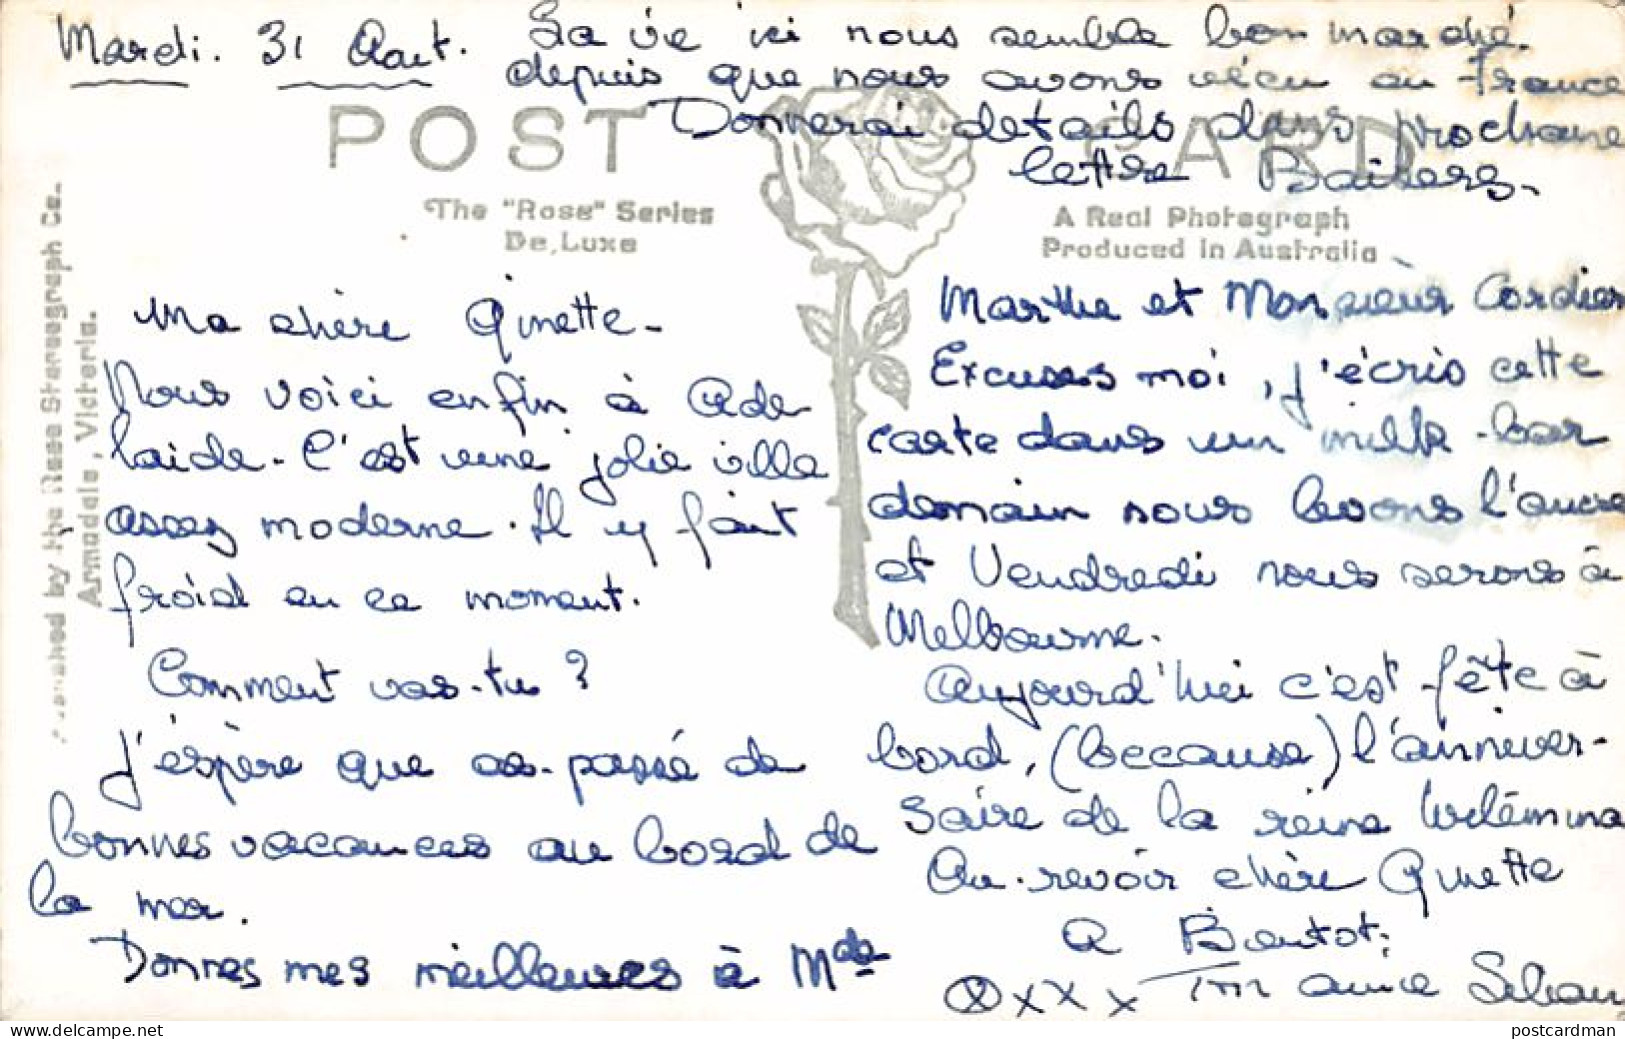 Mardi. 31 Aout. La vie ici nous semble bon marché.
depuis que nous avons vécu en France
Donnerai details dans prochaine
lettre Baisers.
POST CARD
The "Rose" Series
De Luxe
A Real Photograph
Produced in Australia
Published by the Rose Stereograph Co.
Armadale, Victoria.
Ma chère Ginette-
Nous voici enfin à Ade-
laide- C'est une jolie ville
assez moderne. Il y fait
froid en ce moment.
Comment vas-tu ?
J'éspère que as-passé de
bonnes vacances au bord de
la mer.
Donnes mes meilleures à Mde
Marthe et Monsieur Cordier
Excuses moi, j'écris cette
carte dans un milk-bar
demain nous levons l'ancre
et Vendredi nous serons à
Melbourne.
Aujourd'hui c'est fête à
bord, (because) l'anniver-
saire de la reine Wilémina
Au-revoir chère Ginette
A Bientot.
xxx Ton amie
postcardman